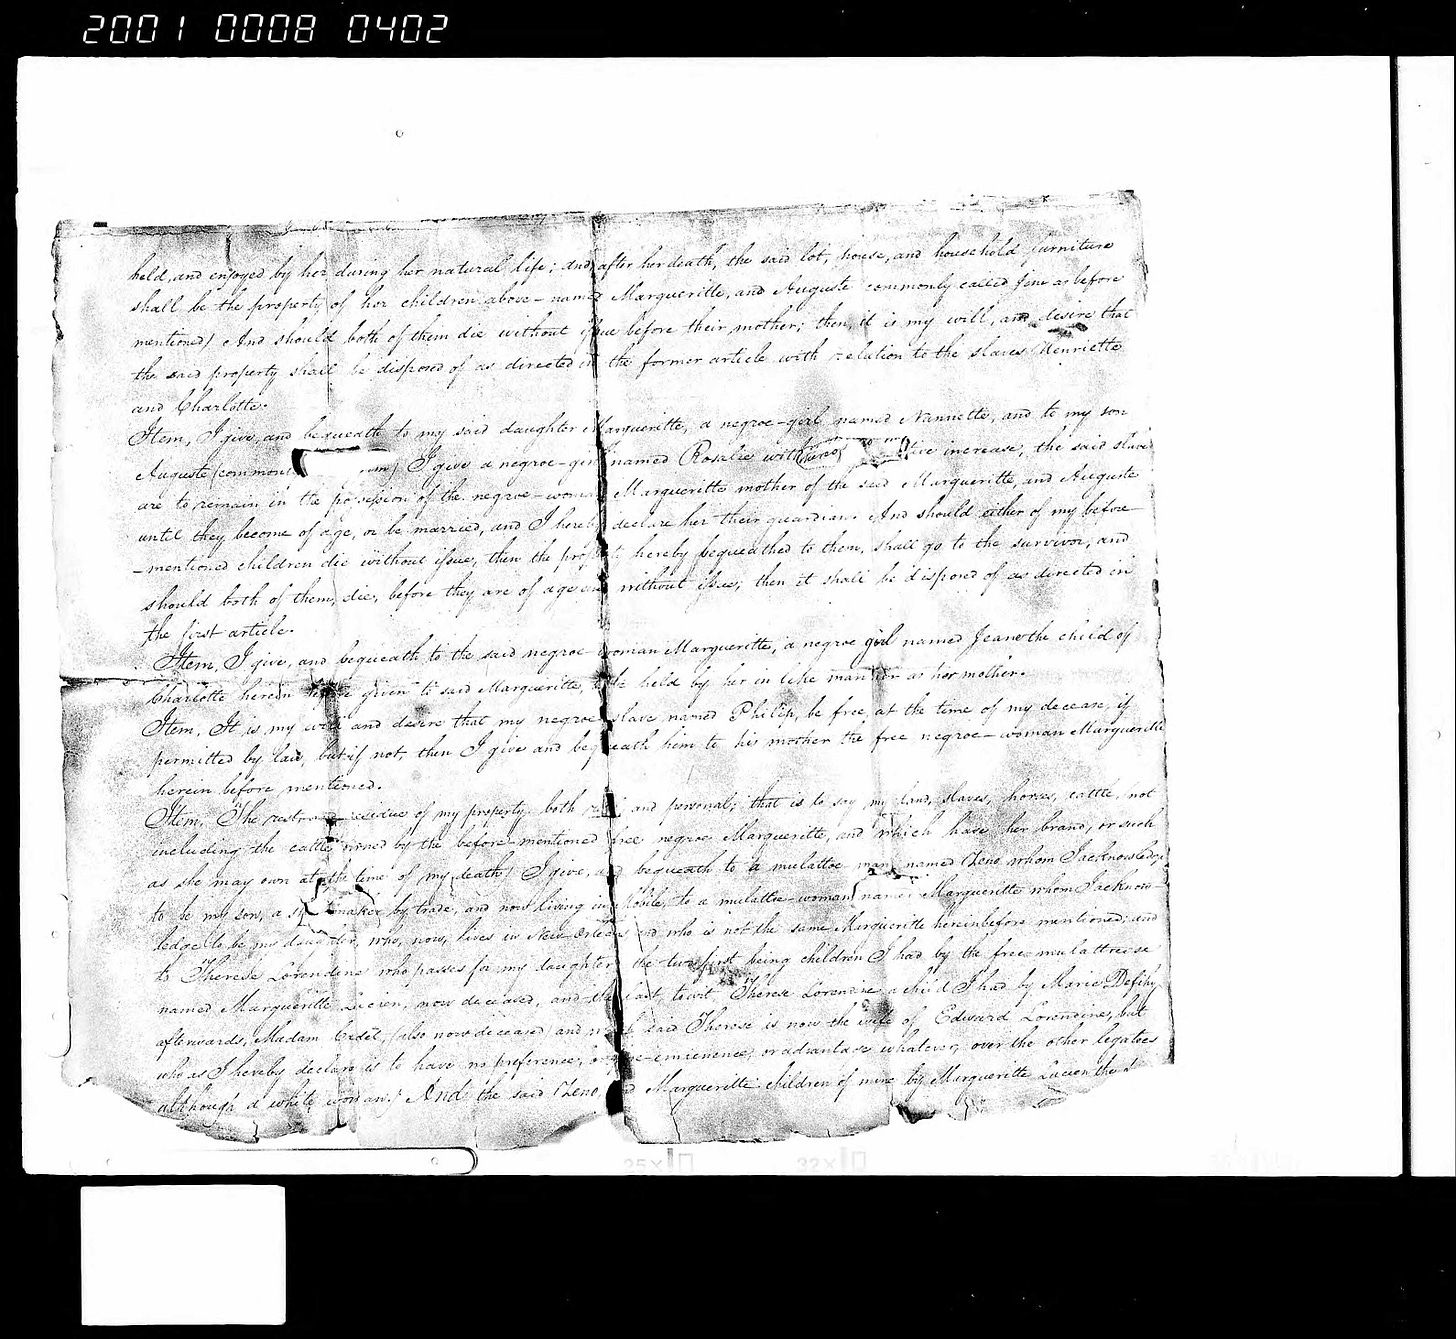 2001 0008 0402
held, and enjoyed by her during her natural life; and, after her death, the said lot, house, and household furniture
shall be the property of her children above-named Margueritte, and Auguste commonly called Jim as before
mentioned) And should both of them die without issue before their mother; then, it is my will, and desire that
the said property shall be disposed of as directed in the former article with relation to the slaves Henriette
and Charlotte.
Item, I give, and bequeath to my said daughter Margueritte, a negroe-girl named Nannette, and to my son
Auguste (common I give a negroe-girl named Rosalie with increase, the said slaves
are to remain in the possession of the negroe-woman Margueritte mother of the said Margueritte, and Auguste
until they become of age, or be married, and I hereby declare her their guardian. And should either of my before-
-mentioned children die without issue, then the hereby bequeathed to them, shall go to the survivor, and
should both of them, die, before they are of age without issue; then it shall be disposed of as directed in
the first article.
Item, I give, and bequeath to the said negroe-woman Margueritte, a negroe girl named Jeane the child of
Charlotte herein before given to said Margueritte, to be held by her in like manner as her mother.
Item, It is my will and desire that my negroe slave named Philip, be free, at the time of my decease, if
permitted by law, but if not, then I give and bequeath him to his mother the free negroe-woman Margueritte
herein before mentioned.
Item, The rest and residue of my property both real and personal; that is to say, my land, slaves, horses, cattle, not
including the cattle owned by the before-mentioned free negroe Margueritte, and which have her brand, or such
as she may own at the time of my death) I give, and bequeath to a mulattoe man named Zeno whom I acknowledge
to be my son, a by trade, and now living in Mobile, to a mulattoe-woman named Margueritte whom I acknow-
ledge to be my daughter, who, now, lives in New-Orleans and who is not the same Margueritte hereinbefore mentioned; and
to Therese Lorendine who passes for my daughter the two first being children I had by the free mulattresse
named Margueritte Lucien, now deceased, and the last, to wit, Therese Lorendine a child I had by Marie Defihy
afterwards, Madam Cadet, (also now deceased) and said Therese is now the wife of Edward Lorendine, but
who as I hereby declare is to have no preference, or pre-eminence, or advantage whatever, over the other legatees
although a white woman.) And the said Zeno, and Margueritte children of mine by Margueritte Lucien the
25X 32X